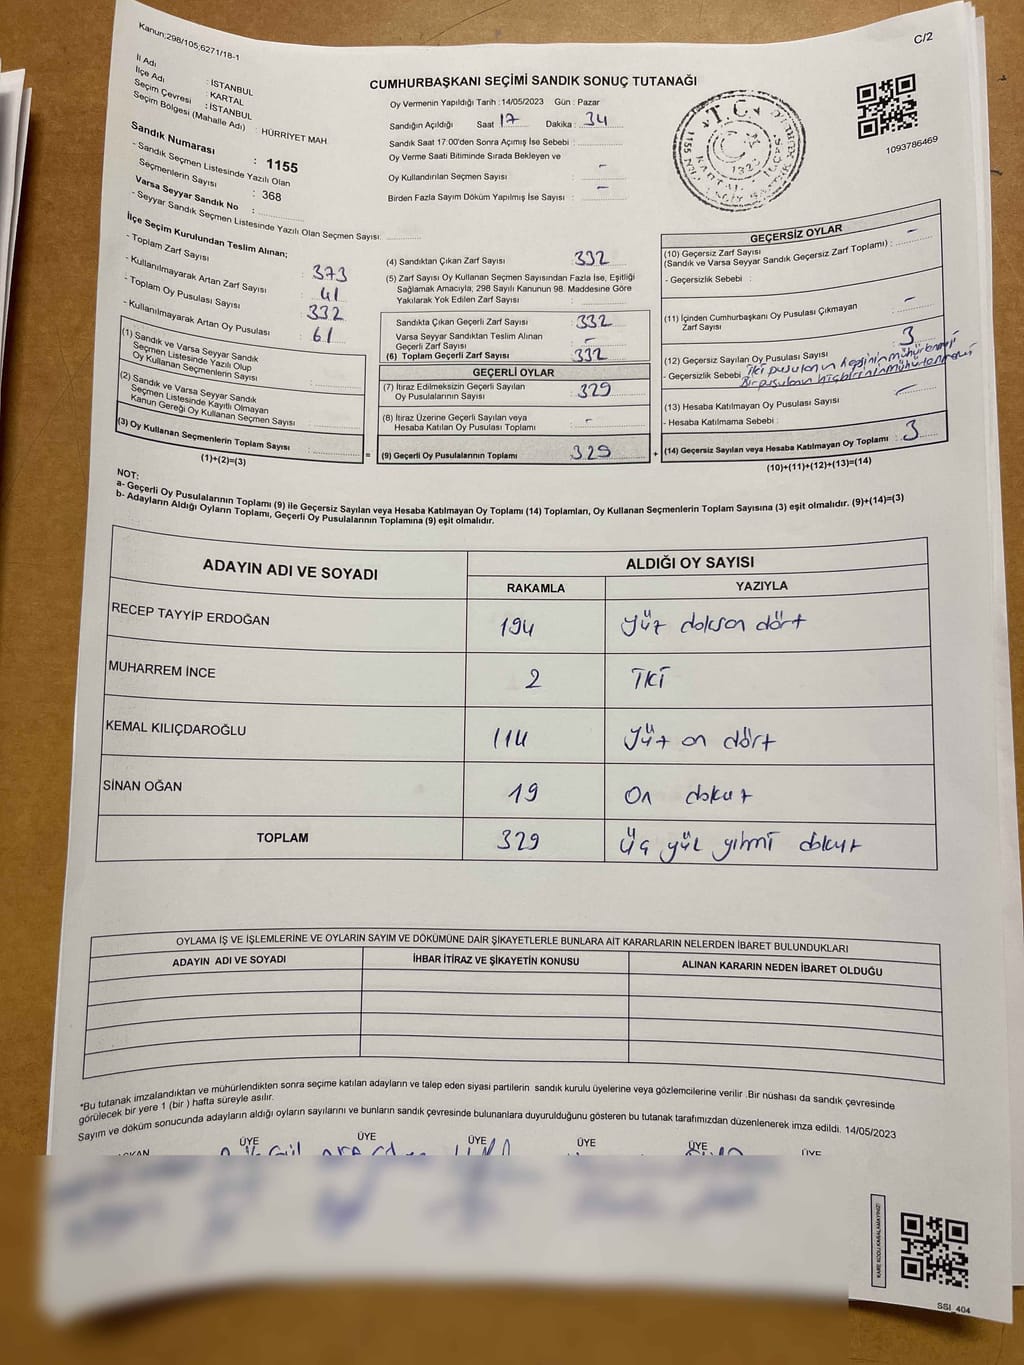 Kanun:298/105,6271/18-1
C/2
İl Adı : İSTANBUL
İlçe Adı : KARTAL
Seçim Çevresi : İSTANBUL
Seçim Bölgesi (Mahalle Adı) : HÜRRİYET MAH
Sandık Numarası : 1155
- Sandık Seçmen Listesinde Yazılı Olan
Seçmenlerin Sayısı : 368
Varsa Seyyar Sandık No :
- Seyyar Sandık Seçmen Listesinde Yazılı Olan Seçmen Sayısı:
CUMHURBAŞKANI SEÇİMİ SANDIK SONUÇ TUTANAĞI
Oy Vermenin Yapıldığı Tarih : 14/05/2023 Gün : Pazar
Sandığın Açıldığı Saat 17 Dakika : 34
Sandık Saat 17:00'den Sonra Açımış İse Sebebi :
Oy Verme Saati Bitiminde Sırada Bekleyen ve
Oy Kullandırılan Seçmen Sayısı : -
Birden Fazla Sayım Döküm Yapılmış İse Sayısı : -
T.C.
1093786469
İlçe Seçim Kurulundan Teslim Alınan;
- Toplam Zarf Sayısı : 373
- Kullanılmayarak Artan Zarf Sayısı : 41
- Toplam Oy Pusulası Sayısı : 332
- Kullanılmayarak Artan Oy Pusulası : 61
(1) Sandık ve Varsa Seyyar Sandık
Seçmen Listesinde Yazılı Olup
Oy Kullanan Seçmenlerin Sayısı :
(2) Sandık ve Varsa Seyyar Sandık
Seçmen Listesinde Kayıtlı Olmayan
Kanun Gereği Oy Kullanan Seçmen Sayısı :
(3) Oy Kullanan Seçmenlerin Toplam Sayısı :
(1)+(2)=(3)
(4) Sandıktan Çıkan Zarf Sayısı : 332
(5) Zarf Sayısı Oy Kullanan Seçmen Sayısından Fazla İse, Eşitliği
Sağlamak Amacıyla; 298 Sayılı Kanunun 98. Maddesine Göre
Yakılarak Yok Edilen Zarf Sayısı :
Sandıkta Çıkan Geçerli Zarf Sayısı : 332
Varsa Seyyar Sandıktan Teslim Alınan
Geçerli Zarf Sayısı : -
(6) Toplam Geçerli Zarf Sayısı : 332
GEÇERLİ OYLAR
(7) İtiraz Edilmeksizin Geçerli Sayılan
Oy Pusulalarının Sayısı : 329
(8) İtiraz Üzerine Geçerli Sayılan veya
Hesaba Katılan Oy Pusulası Toplamı : -
= (9) Geçerli Oy Pusulalarının Toplamı : 329
GEÇERSİZ OYLAR
(10) Geçersiz Zarf Sayısı
(Sandık ve Varsa Seyyar Sandık Geçersiz Zarf Toplamı) : -
- Geçersizlik Sebebi :
(11) İçinden Cumhurbaşkanı Oy Pusulası Çıkmayan
Zarf Sayısı : -
(12) Geçersiz Sayılan Oy Pusulası Sayısı : 3
- Geçersizlik Sebebi : İki pusulanın hepsinin mühürlenmesi
Bir pusulanın hiçbirinin mühürlenmemesi
(13) Hesaba Katılmayan Oy Pusulası Sayısı : -
- Hesaba Katılmama Sebebi :
+ (14) Geçersiz Sayılan veya Hesaba Katılmayan Oy Toplamı : 3
(10)+(11)+(12)+(13)=(14)
NOT:
a- Geçerli Oy Pusulalarının Toplamı (9) ile Geçersiz Sayılan veya Hesaba Katılmayan Oy Toplamı (14) Toplamları, Oy Kullanan Seçmenlerin Toplam Sayısına (3) eşit olmalıdır. (9)+(14)=(3)
b- Adayların Aldığı Oyların Toplamı, Geçerli Oy Pusulalarının Toplamına (9) eşit olmalıdır.
ADAYIN ADI VE SOYADI ALDIĞI OY SAYISI
RAKAMLA YAZIYLA
RECEP TAYYİP ERDOĞAN 194 Yüz doksan dört
MUHARREM İNCE 2 İki
KEMAL KILIÇDAROĞLU 114 Yüz on dört
SİNAN OĞAN 19 On dokuz
TOPLAM 329 Üç yüz yirmi dokuz
OYLAMA İŞ VE İŞLEMLERİNE VE OYLARIN SAYIM VE DÖKÜMÜNE DAİR ŞİKAYETLERLE BUNLARA AİT KARARLARIN NELERDEN İBARET BULUNDUKLARI
ADAYIN ADI VE SOYADI İHBAR İTİRAZ VE ŞİKAYETİN KONUSU ALINAN KARARIN NEDEN İBARET OLDUĞU
*Bu tutanak imzalandıktan ve mühürlendikten sonra seçime katılan adayların ve talep eden siyasi partilerin sandık kurulu üyelerine veya gözlemcilerine verilir .Bir nüshası da sandık çevresinde
görülecek bir yere 1 (bir ) hafta süreyle asılır.
Sayım ve döküm sonucunda adayların aldığı oyların sayılarını ve bunların sandık çevresinde bulunanlara duyurulduğunu gösteren bu tutanak tarafımızdan düzenlenerek imza edildi. 14/05/2023
ÜYE ÜYE ÜYE ÜYE ÜYE ÜYE
KARE KODU KARALAMAYINIZ!
SSI_404